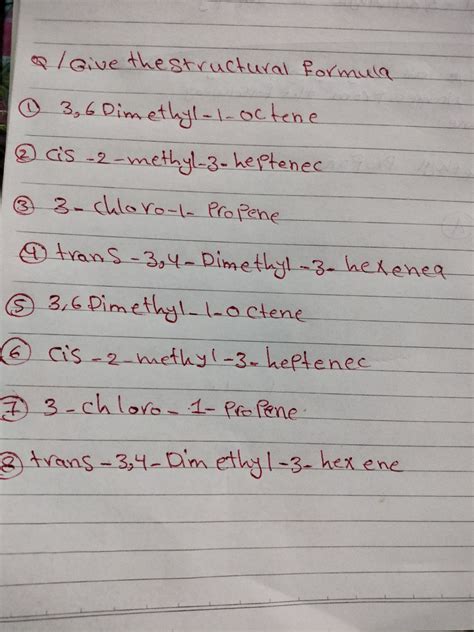 Q/Give the structural formula
① 3,6 Dimethyl-1-octene
② cis-2-methyl-3-heptenec
③ 3-chloro-1-Propene
④ trans-3,4-Dimethyl-3-hexenea
⑤ 3,6 Dimethyl-1-octene
⑥ cis-2-methyl-3-heptenec
⑦ 3-chloro-1-Propene.
⑧ trans-3,4-Dimethyl-3-hexene